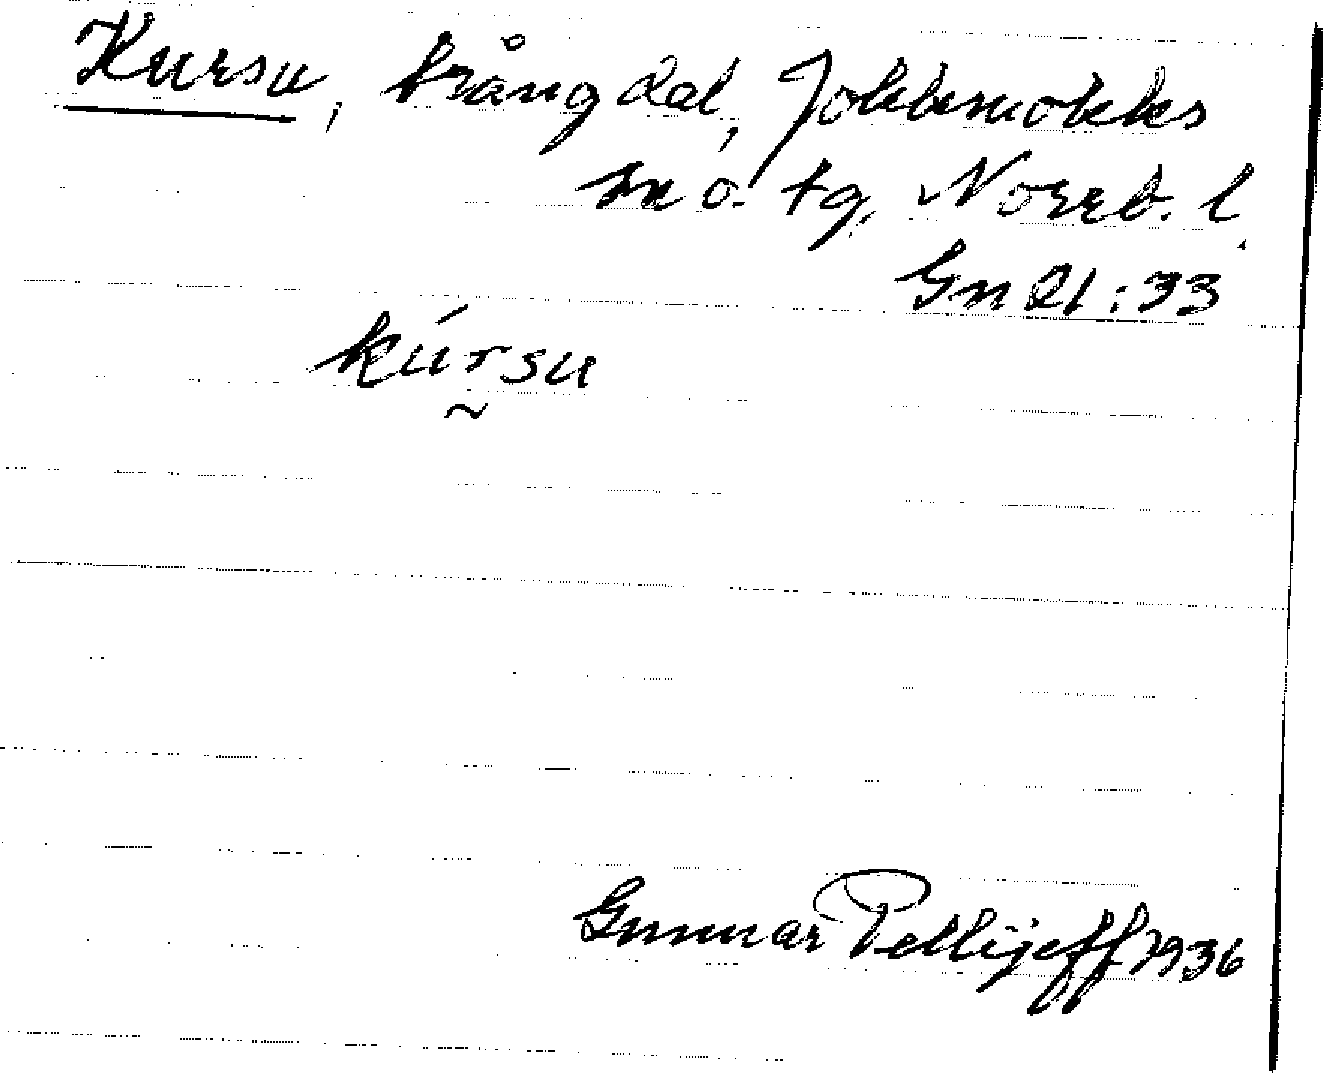 Kursu, trång dal, Jokkmokks
sn o. tg, Norrb. l.
Gn 21:33
kúrsu
~
Gunnar Pellijeff 1936